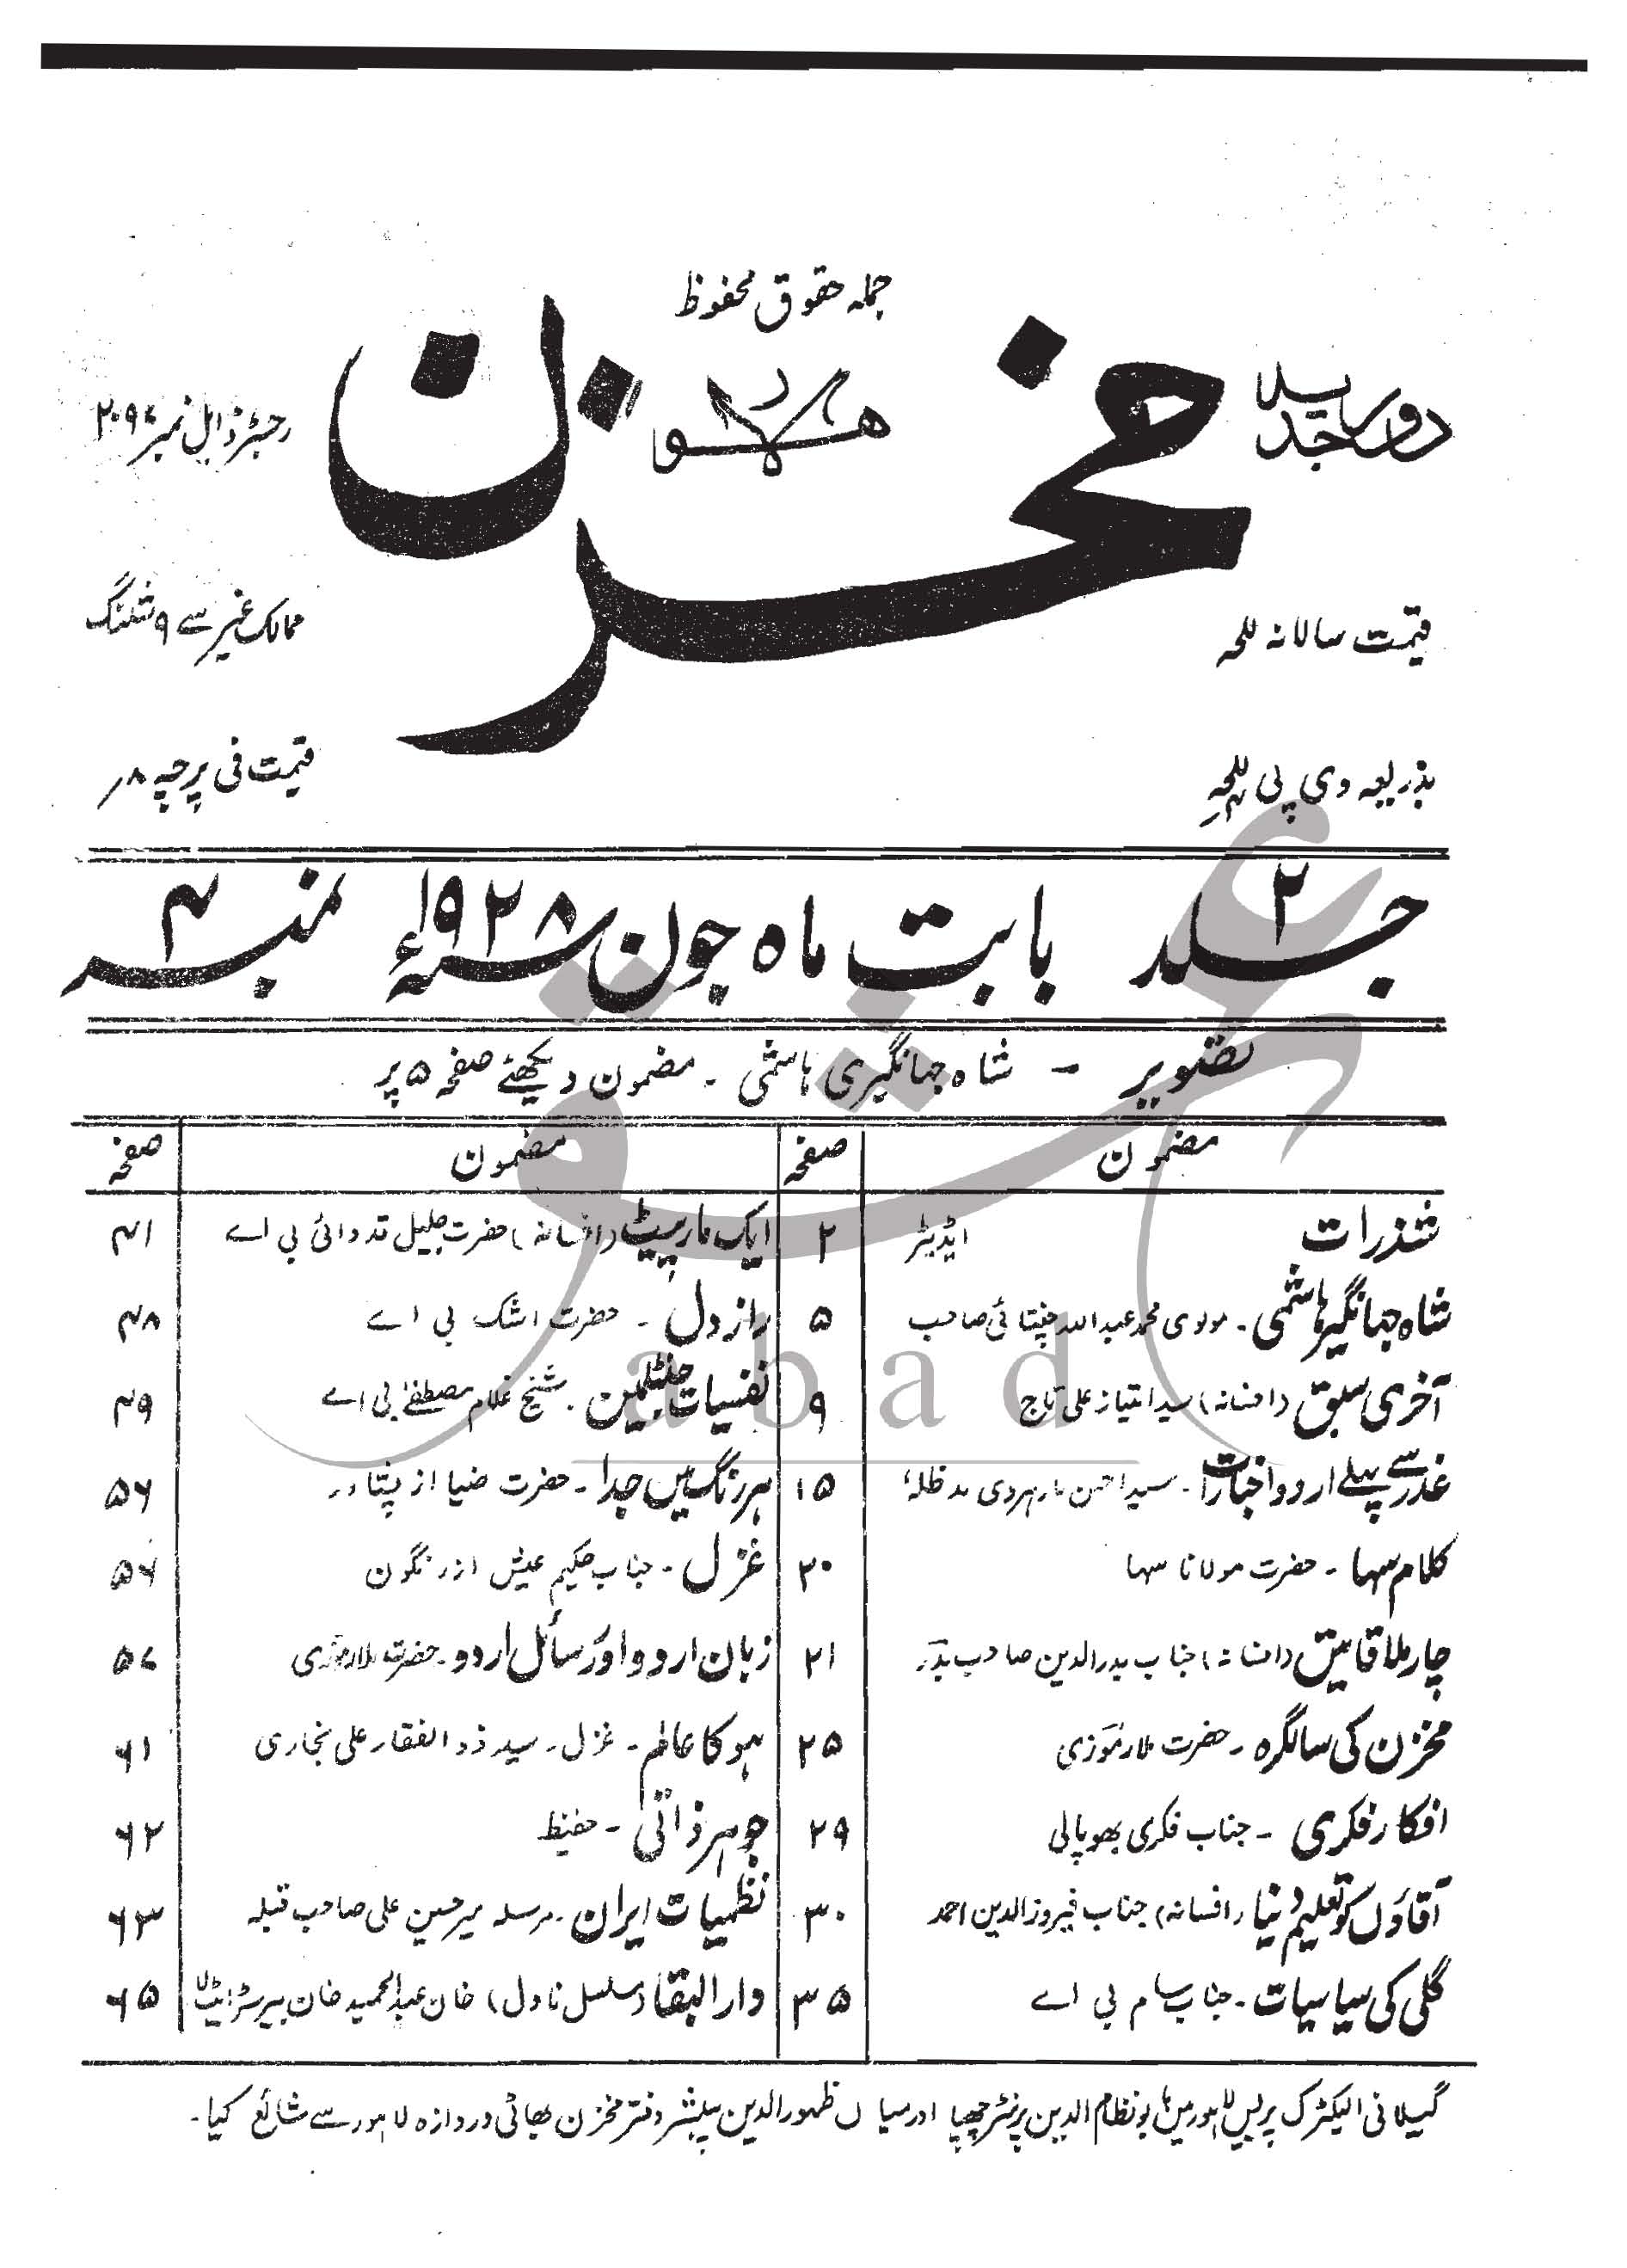 جملہ حقوق محفوظ
دور جدید
مخزن
لاہور
رجسٹرڈ ایل نمبر ۲۰۹۷
قیمت سالانہ للعہ
ممالک غیر سے ۹ شلنگ
بذریعہ وی پی
قیمت فی پرچہ ۸؍
جلد ۲ بابت ماہ جون ۱۹۲۸ء نمبر ۴
تصویر - شاہ جہانگیری ہاشمی - مضمون دیکھئے صفحہ ۵ پر
مضمون صفحہ مضمون صفحہ
شذرات ایڈیٹر ۲ ایک مارپیٹ (افسانہ) حضرت جلیل قدوائی بی اے ۴۱
شاہ جہانگیر ہاشمی - مولوی محمد عبداللہ چغتائی صاحب ۵ راز دل - حضرت اشک بی اے ۴۸
آخری سبق (افسانہ) سید امتیاز علی تاج ۹ نفسیات جنٹلمین - شیخ غلام مصطفےٰ بی اے ۴۹
غدر سے پہلے اردو اخبارات - سید احسن مارہروی مدظلہٗ ۱۵ ہر رنگ میں جدا - حضرت ضیا از پشاور ۵۶
کلام سہا - حضرت مولانا سہا ۲۰ غزل - جناب حکیم عیش از رنگون ۵۶
چار ملاقاتیں (افسانہ) جناب بدرالدین صاحب بدر ۲۱ زبان اردو اور رسائل اردو - حضرت ملا رموزی ۵۷
مخزن کی سالگرہ - حضرت ملا رموزی ۲۵ ہو کا عالم - غزل - سید ذوالفقار علی بخاری ۶۱
افکار فکری - جناب فکری بھوپالی ۲۹ جوہر ذاتی - حفیظ ۶۲
آقاؤں کو تعلیم دینا (افسانہ) جناب فیروز الدین احمد ۳۰ نظمیات ایران - مرسلہ میر حسین علی صاحب قبلہ ۶۳
گلی کی سیاسیات - جناب سام بی اے ۳۵ دار البقا (مسلسل ناول) خان عبدالحمید خان بیرسٹر ایٹ لا ۶۵
گیلانی الیکٹرک پریس لاہور میں بابو نظام الدین پرنٹر چھپا اور میاں ظہور الدین پبلشر دفتر مخزن بھاٹی دروازہ لاہور سے شائع کیا -
abad